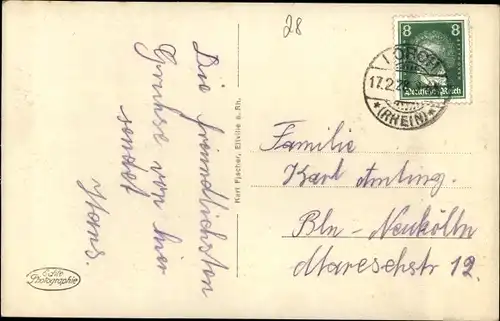 28
Die freundlichsten
Grüsse von hier
sendet
Hans.
Echte
Photographie
Karl Fischer, Eltville a. Rh.
8 8
Deutsches Reich
LORCH
17.2.
*(RHEIN)*
Familie
Karl Amling.
Bln - Neukölln
Mareschstr 12.